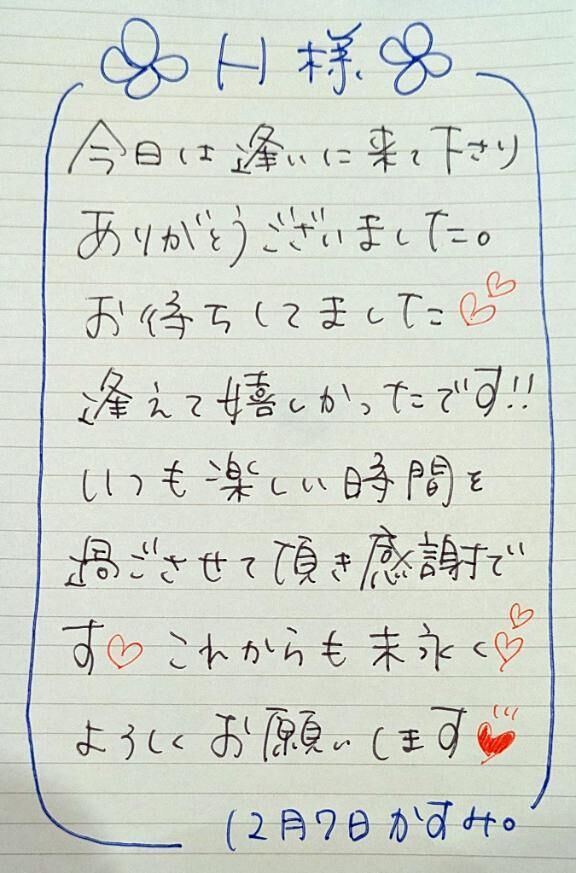 H様
今日は逢いに来て下さり
ありがとうございました。
お待ちしてました
逢えて嬉しかったです!!
いつも楽しい時間を
過ごさせて頂き感謝で
す♡これからも末永く
よろしくお願いします
12月7日かすみ。